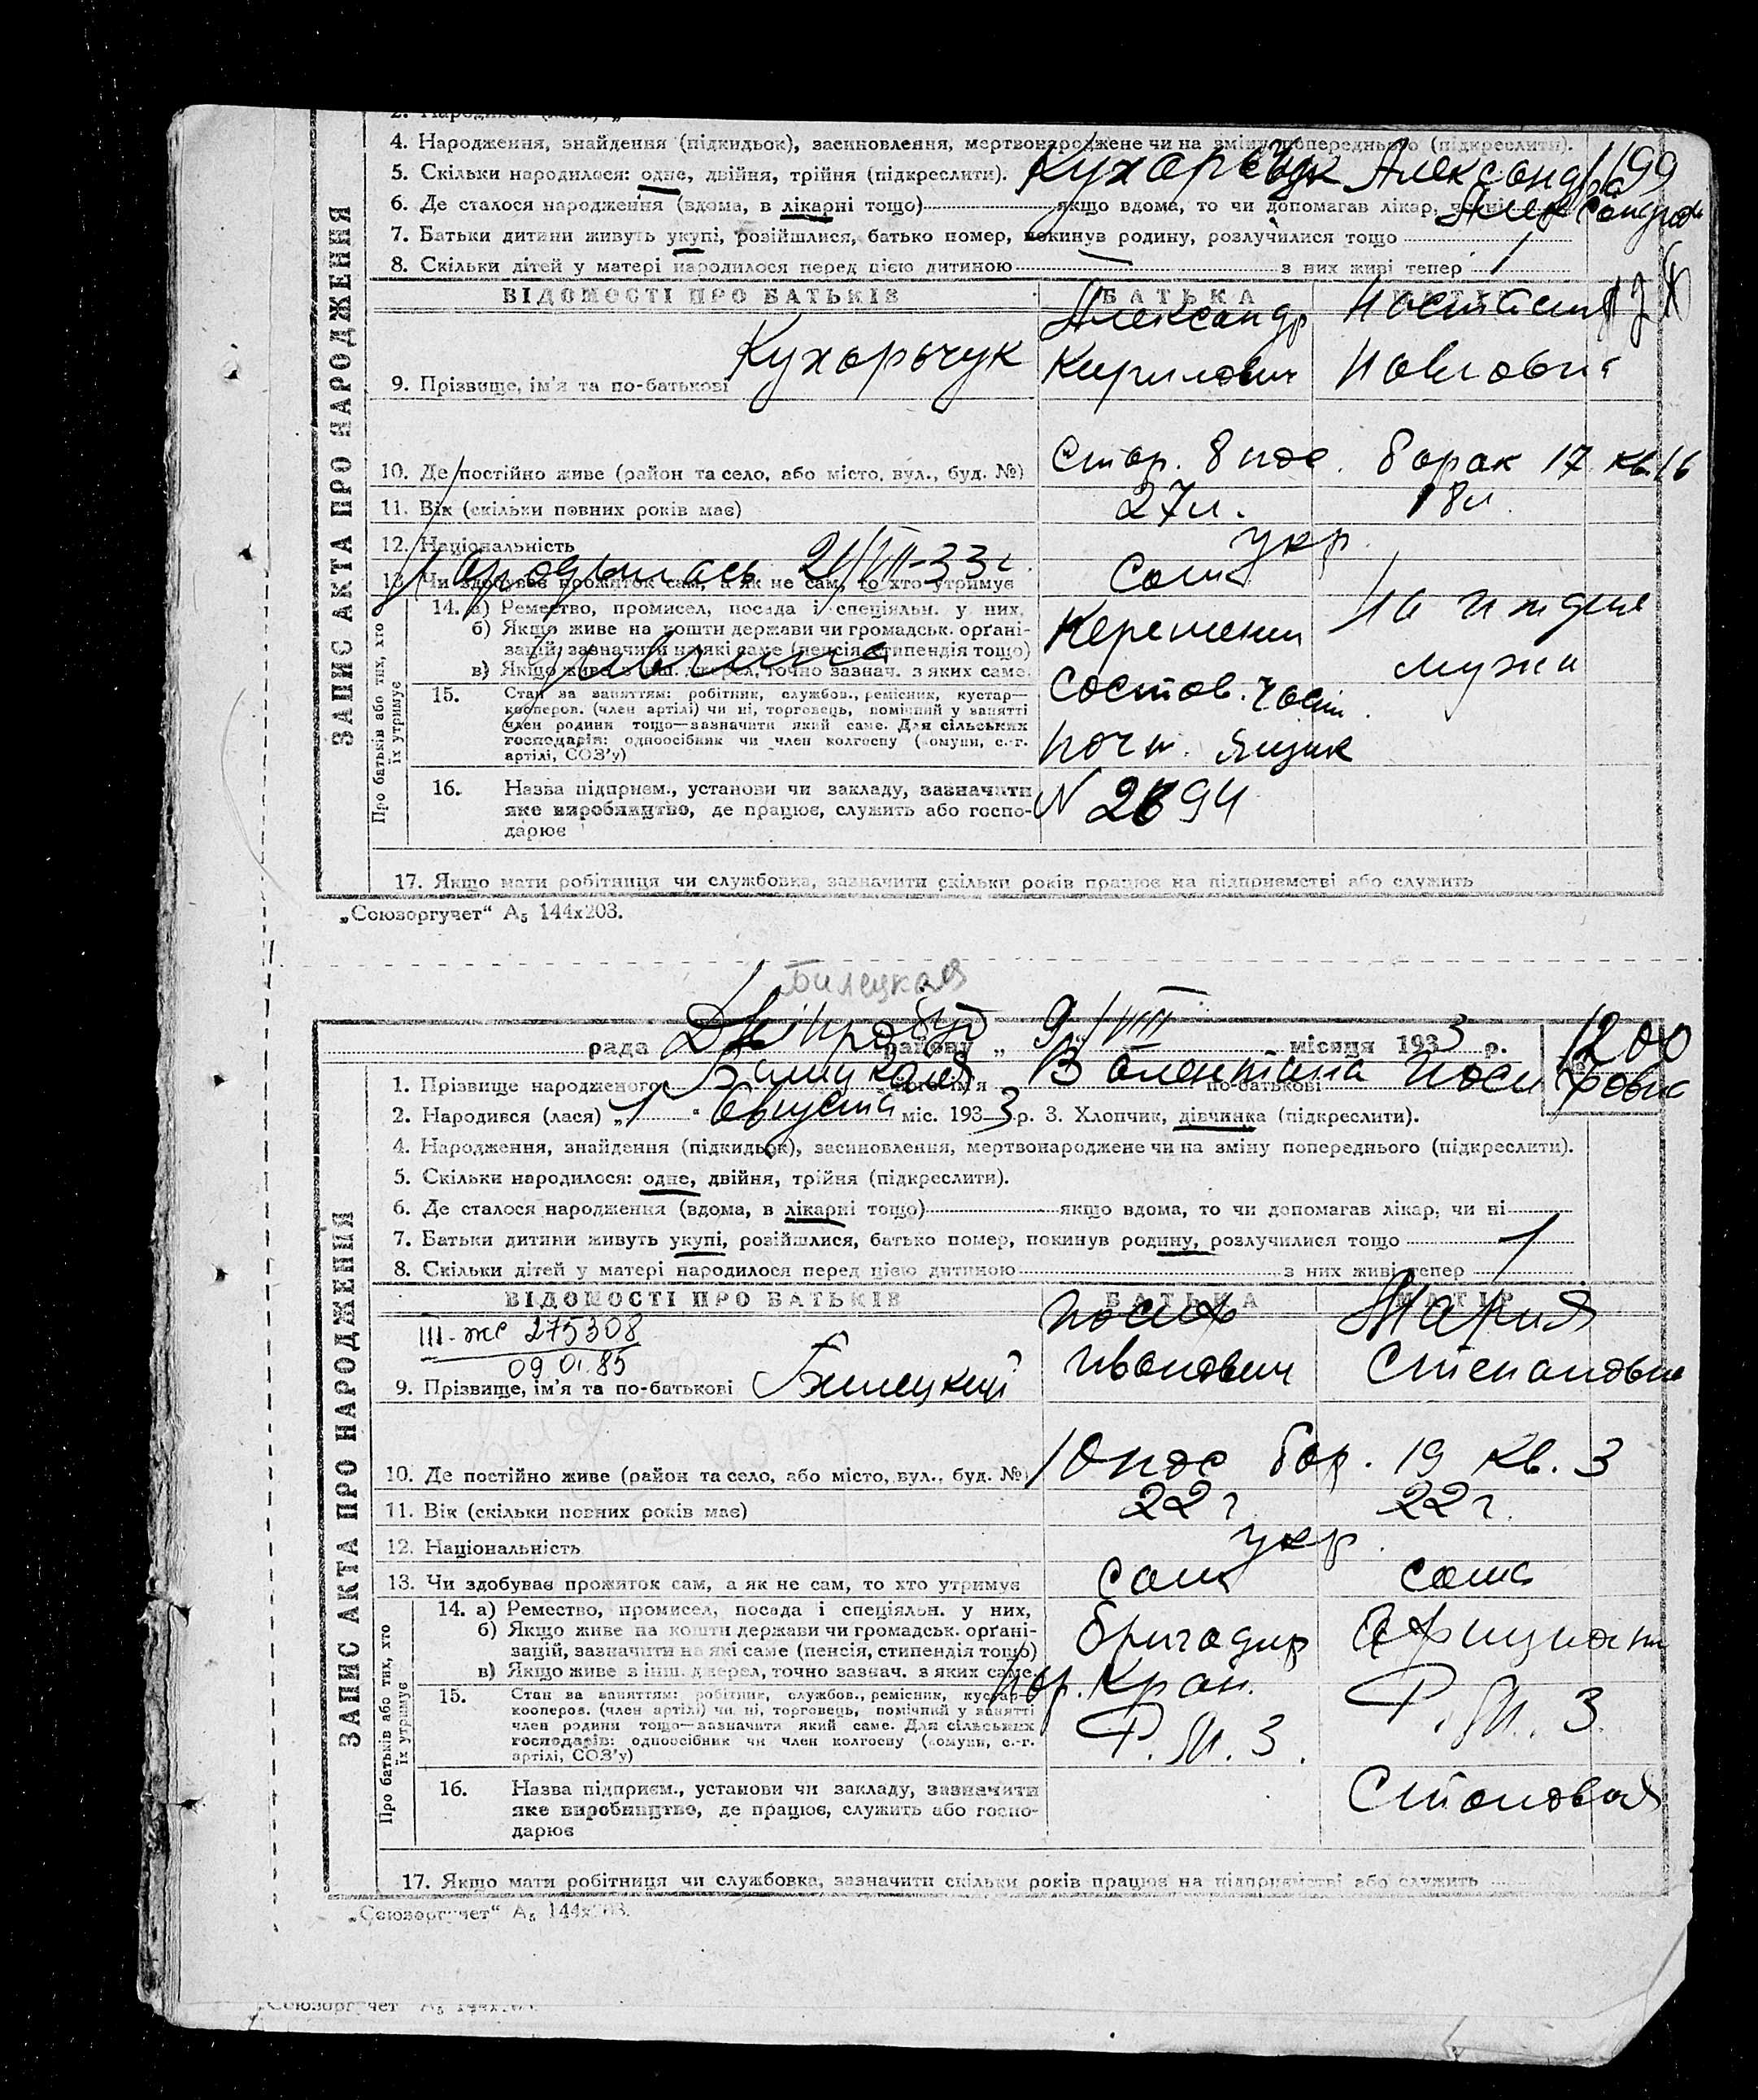 4. Народження, знайдення (підкидьок), засиновлення, мертвонароджене чи на зміну попереднього (підкреслити).
5. Скільки народилося: одне, двійня, трійня (підкреслити). Кухарчук Александра 1199
6. Де сталося народження (вдома, в лікарні тощо) якщо вдома, то чи допомагав лікар, чи ні Александров
7. Батьки дитини живуть укупі, розійшлися, батько помер, покинув родину, розлучилися тощо
8. Скільки дітей у матері народилося перед цією дитиною з них живі тепер
ВІДОМОСТІ ПРО БАТЬКІВ БАТЬКА
Александр Настасия
Кухарьчук Кирилович Павловна
9. Прізвище, ім'я та по-батькові
10. Де постійно живе (район та село, або місто, вул., буд. №) Стар. 8 пос. барак 17 кв. 16
11. Вік (скільки повних років має) 27 л. 18 л.
12. Національність укр.
Народылась 21/VII-33 г.
13. Чи здобуває прожиток сам, а як не сам, то хто утримує Сам
14. а) Ремество, промисел, посада і спеціяльн. у них,
б) Якщо живе на кошти держави чи громадськ. орґані-
зацій, зазначити на які саме (пенсія, стипендія тощо)
в) Якщо живе з інш. джерел, точно зазнач. з яких саме
На иждив
мужа
дивчина
15. Стан за заняттям: робітник, службов., ремісник, кустар—
кооперов. (член артілі) чи ні, торговець, помічний у занятті
член родини тощо—зазначити який саме. Для сільських
господарів: одноосібник чи член колгоспу (комуни, с.-г.
артілі, СОЗ'у)
Состав. част.
почт. ящик
16. Назва підприєм., установи чи закладу, зазначити
яке виробництво, де працює, служить або госпо-
дарює
17. Якщо мати робітниця чи службовка, зазначити скільки років працює на підприємстві або служить
ЗАПИС АКТА ПРО НАРОДЖЕННЯ
Про батьків або тих, хто
їх утримує
„Союзоргучет“ А₅ 144х203.
Билецкая
рада Дніпробуд району „ 9 „ VIII місяця 1933 р. 1200
1. Прізвище народженого Билецкая його ім'я Валентина по-батькові Иосифовна
2. Народився (лася) „ 1 “ Августа міс. 1933 р. 3. Хлопчик, дівчинка (підкреслити).
4. Народження, знайдення (підкидьок), засиновлення, мертвонароджене чи на зміну попереднього (підкреслити).
5. Скільки народилося: одне, двійня, трійня (підкреслити).
6. Де сталося народження (вдома, в лікарні тощо) якщо вдома, то чи допомагав лікар, чи ні
7. Батьки дитини живуть укупі, розійшлися, батько помер, покинув родину, розлучилися тощо
8. Скільки дітей у матері народилося перед цією дитиною з них живі тепер
ВІДОМОСТІ ПРО БАТЬКІВ БАТЬКА МАТІР
III-жс 275308
09 01.85
Иосиф Мария
9. Прізвище, ім'я та по-батькові Билецкий Иванович Степановна
10. Де постійно живе (район та село, або місто, вул., буд. №) 10 пос бар. 19 кв. 3
11. Вік (скільки повних років має) 22 г. 22 г.
12. Національність укр.
13. Чи здобуває прожиток сам, а як не сам, то хто утримує Сам сама
14. а) Ремество, промисел, посада і спеціяльн. у них,
б) Якщо живе на кошти держави чи громадськ. орґані-
зацій, зазначити на які саме (пенсія, стипендія тощо)
в) Якщо живе з інш. джерел, точно зазнач. з яких саме
бригадир Официант
Кран.
15. Стан за заняттям: робітник, службов., ремісник, кустар—
кооперов. (член артілі) чи ні, торговець, помічний у занятті
член родини тощо—зазначити який саме. Для сільських
господарів: одноосібник чи член колгоспу (комуни, с.-г.
артілі, СОЗ'у)
Р.М.З. Р.М.З.
16. Назва підприєм., установи чи закладу, зазначити
яке виробництво, де працює, служить або госпо-
дарює
Столовая
17. Якщо мати робітниця чи службовка, зазначити скільки років працює на підприємстві або служить
ЗАПИС АКТА ПРО НАРОДЖЕННЯ
Про батьків або тих, хто
їх утримує
„Союзоргучет“ А₅ 144х203.